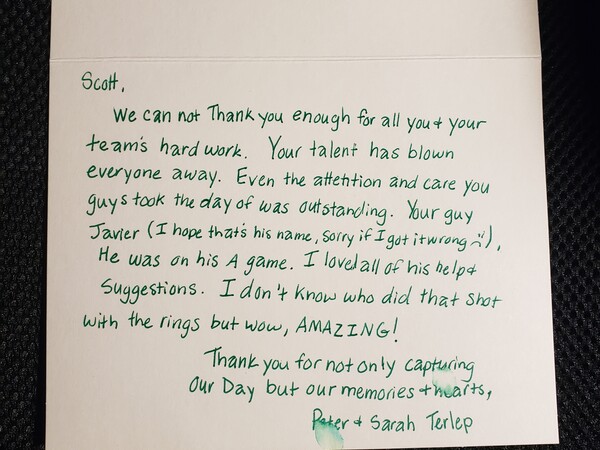 Scott,
We can not Thank you enough for all you & your
team's hard work. Your talent has blown
everyone away. Even the attention and care you
guys took the day of was outstanding. Your guy
Javier (I hope that's his name, sorry if I got it wrong ☹),
He was on his A game. I loved all of his help &
Suggestions. I don't know who did that shot
with the rings but wow, AMAZING!
Thank you for not only capturing
Our Day but our memories & hearts,
Peter & Sarah Terlep